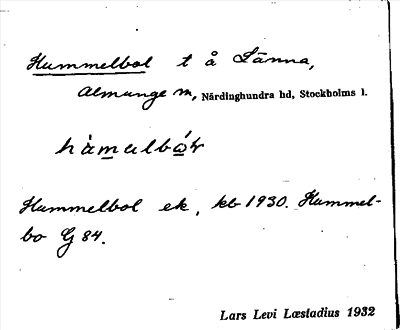 Hummelbol t å Länna,
Almunge sn, Närdinghundra hd, Stockholms l.
Hummelbol ek, kb 1930. Hummel-
bo G 84.
Lars Levi Læstadius 1932